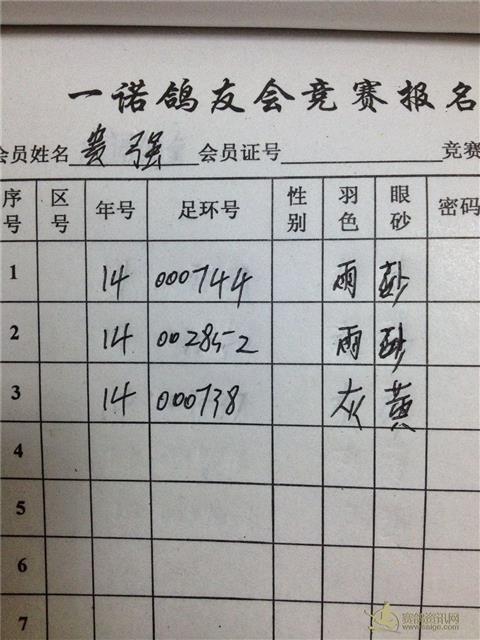 一诺鸽友会竞赛报名
会员姓名 贵强 会员证号 竞赛
序号 区号 年号 足环号 性别 羽色 眼砂 密码
1 14 000744 雨
2 14 002852 雨 砂
3 14 000738 灰 黄
4
5
6
7
赛鸽资讯网
www.saige.com